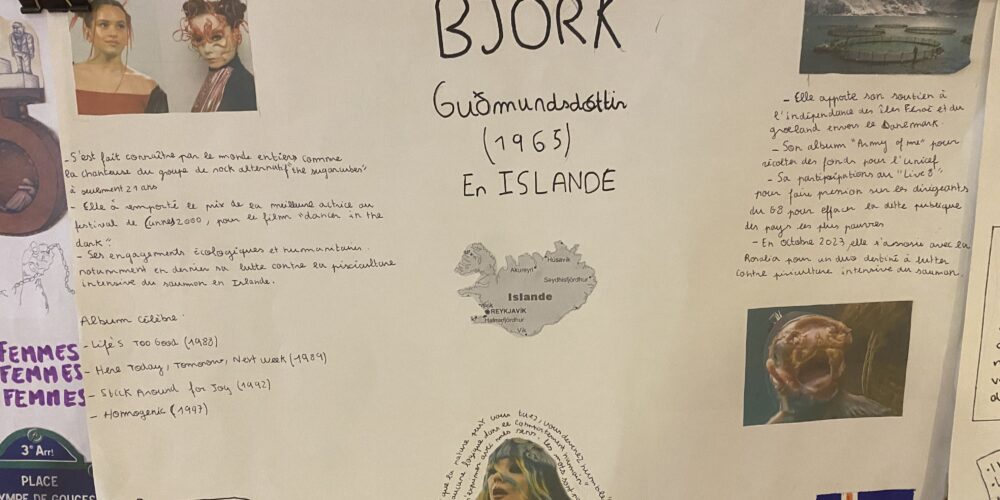 BJORK
Guðmundsdóttir
(1965)
En ISLANDE
- S'est fait connaître par le monde entiers comme
la chanteuse du groupe de rock alternatif "the sugarcubes"
à seulement 21 ans
- Elle à remporté le prix de la meilleure actrice au
festival de Cannes 2000, pour le film "dancer in the
dark"
- Ses engagements écologiques et humanitaires
notamment en dernier sa lutte contre la pisciculture
intensive du saumon en Islande.
Album célèbre :
- Life's Too Good (1988)
- Here Today, Tomorow, Next Week (1989)
- Stick Around for Joy (1992)
- Homogenic (1997)
Húsavík
Akureyri
Seydhisfjördhur
Islande
REYKJAVÍK
Hafnarfjördhur
Vík
- Elle apporte son soutien à
l'indépendance des îles Féroé et du
groeland envers le Danemark.
- Son album "Army of me" pour
récolter des fonds pour l'unicef
- Sa participations au "Live 8"
pour faire pression sur les dirigeants
du G8 pour effacer la dette publique
des pays les plus pauvres
- En octobre 2023, elle s'associe avec la
Rosalia pour un duo destiné à lutter
contre pisciculture intensive du saumon.
que la nature
vous tuez, vous devenez humble
aucune logique dans le comportement humain
avec mes sens. Les mots sont
FEMMES
FEMMES
FEMMES
3e Arrt
PLACE
OLYMPE DE GOUGES